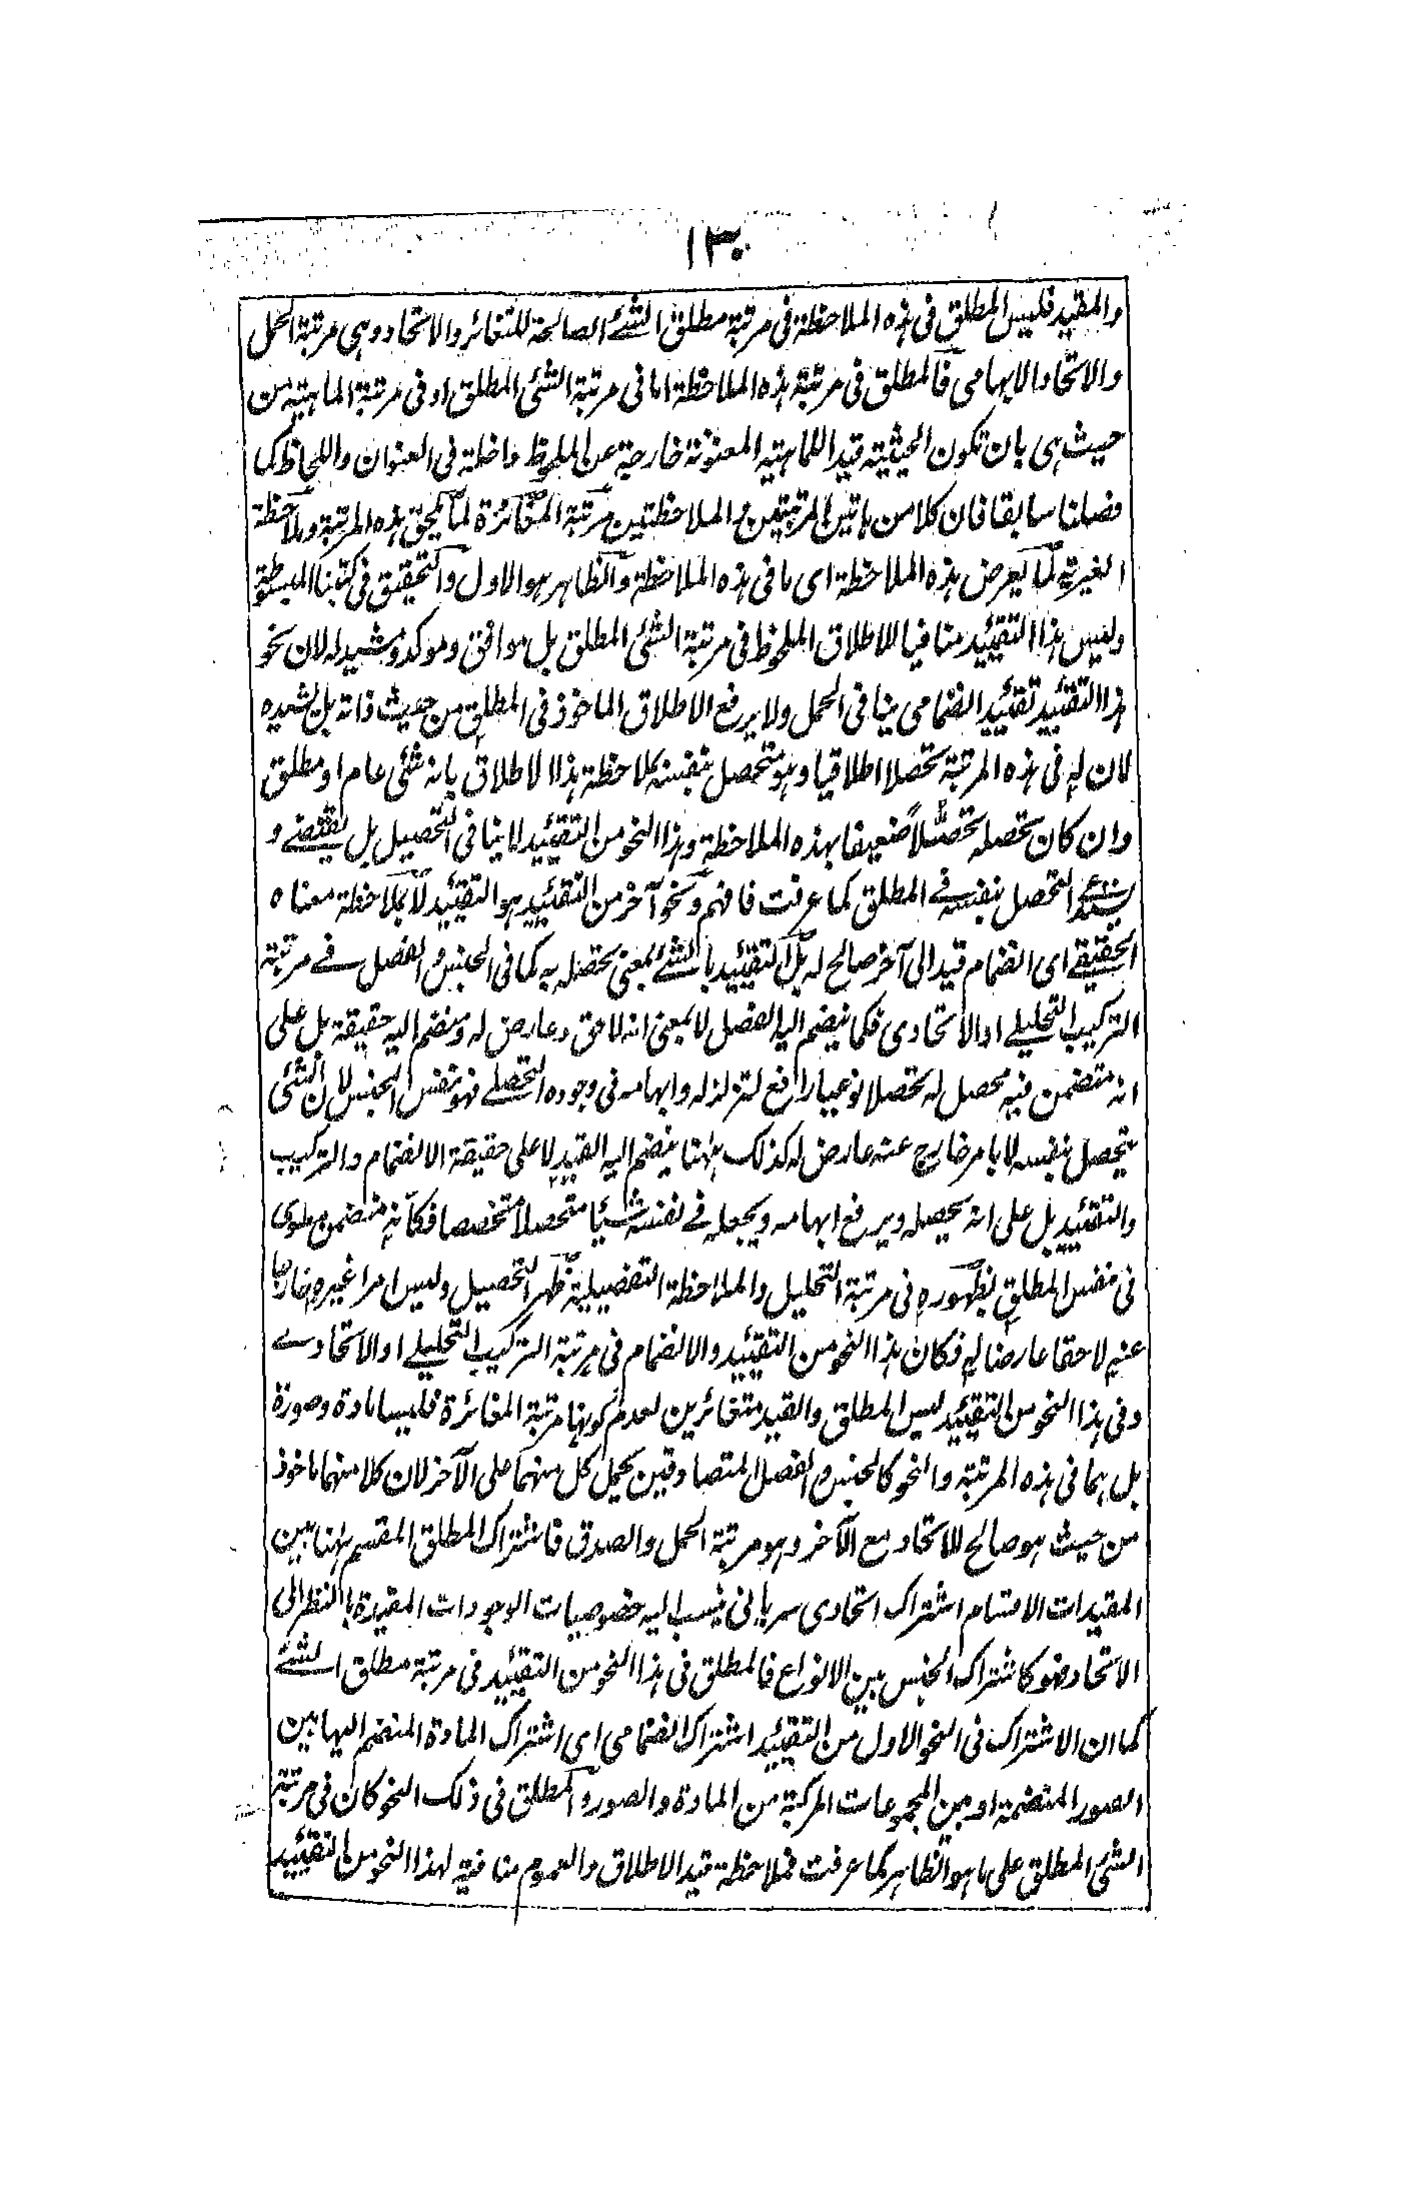 ١٣٠
والمقيد فليس المطلق فى هذه الملاحظة فى مرتبة مطلق الشئ الصالحة للتغائر والاتحاد وهى مرتبة الحمل
والاتحاد الابهامى فالمطلق فى مرتبة هذه الملاحظة اما فى مرتبة الشئ المطلق او فى مرتبة الماهية من
حيث هى بان تكون الحيثية قيد اللماهية المعنونة خارجية عن الملحوظ داخلة فى العنوان واللحاظ كما
فصلنا سابقا فان كلا من هاتين المرتبتين والملاحظتين مرتبة المغائرة لما يلحق هذه المرتبة وملاحظة
الغيرية لما يعرض هذه الملاحظة اى ما فى هذه الملاحظة والظاهر هو الاول والتحقيق فى كتبنا المبسطة
وليس هذا التقييد منافيا للاطلاق الملحوظ فى مرتبة الشئ المطلق بل موافق وموكد ومشيد له لان نحو
هذا التقييد تقييد انضمامى ينافى الحمل ولا يرفع الاطلاق الماخوذ فى المطلق من حيث ذاته بل يشيده
لان له فى هذه المرتبة تحصلا اطلاقيا وهو متحصل بنفسه كملاحظة هذا الاطلاق بانه شئ عام او مطلق
وان كان تحصله تحصلاً ضعيفا بهذه الملاحظة وهذا النحو من التقييد لا ينافى التحصيل بل يقتضے و
يستدعے التحصل بنفسه فے المطلق كما عرفت فافهم ونحو آخر من التقييد هو التقييد لا بملاحظة معناه
الحقيقے اى انضمام قيد الى آخر صالح له بل التقييد بالشئ بمعنى تحصله به كما فى الجنس والفصل فے مرتبة
التركيب التحليلے او الاتحادى فكما ينضم اليه الفصل لا بمعنى انه لاحق وعارض له ومنضم اليه حقيقة بل على
انه متضمن فيه محصل له تحصلا نوعيا رافع لتزلزله وابهامه فى وجوده التحصلے فهو نفس الجنس لان الشئ
يتحصل بنفسه لا بامر خارج عنه عارض له كذلك ههنا ينضم اليه القيد لا على حقيقة الانضمام والتركيب
والتقييد بل على انه يحصله ويرفع ابهامه ويجعله فے نفسه شيئا متحصلا متخصصا فكانه متضمن مطوى
فى نفس المطلق بظهوره فى مرتبة التحليل والملاحظة التفصيلية ظهر التحصيل وليس امرا غيره خارجا
عنه لاحقا عارضا له فكان هذا النحو من التقييد والانضمام فى مرتبة التركيب التحليلے او الاتحادے
وفى هذا النحو من التقييد ليس المطلق والقيد متغائرين لعدم كونها مرتبة المغائرة فليسا مادة وصورة
بل هما فى هذه المرتبة والنحو كالجنس والفصل المتصادقين يحمل كل منهما على الآخر لان كلا منهما ماخوذ
من حيث هو صالح للاتحاد مع الآخر وهو مرتبة الحمل والصدق فاشتراك المطلق المقسم ههنا بين
المقيدات الاقسام اشتراك اتحادى سريانى ينسب اليه خصوصيات الوجودات المقيدة بالنظر الى
الاتحاد فهو كاشتراك الجنس بين الانواع فالمطلق فى هذا النحو من التقييد فى مرتبة مطلق الشئے
كما ان الاشتراك فى النحو الاول من التقييد اشتراك انضمامى اى اشتراك المادة المنضم اليها بين
الصور المنضمة او بين المجموعات المركبة من المادة والصور والمطلق فى ذلك النحو كان فى مرتبة
الشئ المطلق على ما هو الظاهر كما عرفت فملاحظة قيد الاطلاق والعموم منافية لهذا النحو من التقييد